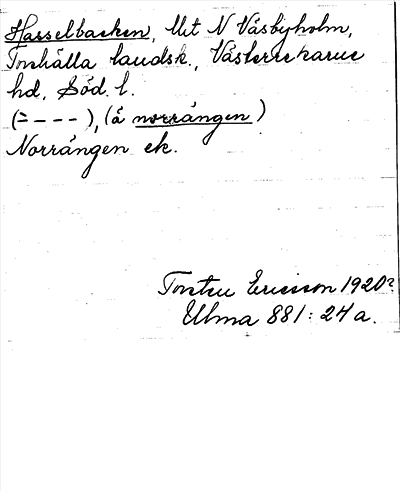 Hasselbacken, Ut N Väsbyholm,
Torshälla landsk., Västerrekarne
hd. Söd. l.
(= - - - -), (å norrängen)
Norrängen ek.
Torsten Ericsson 1920?
Ulma 881: 24 a.